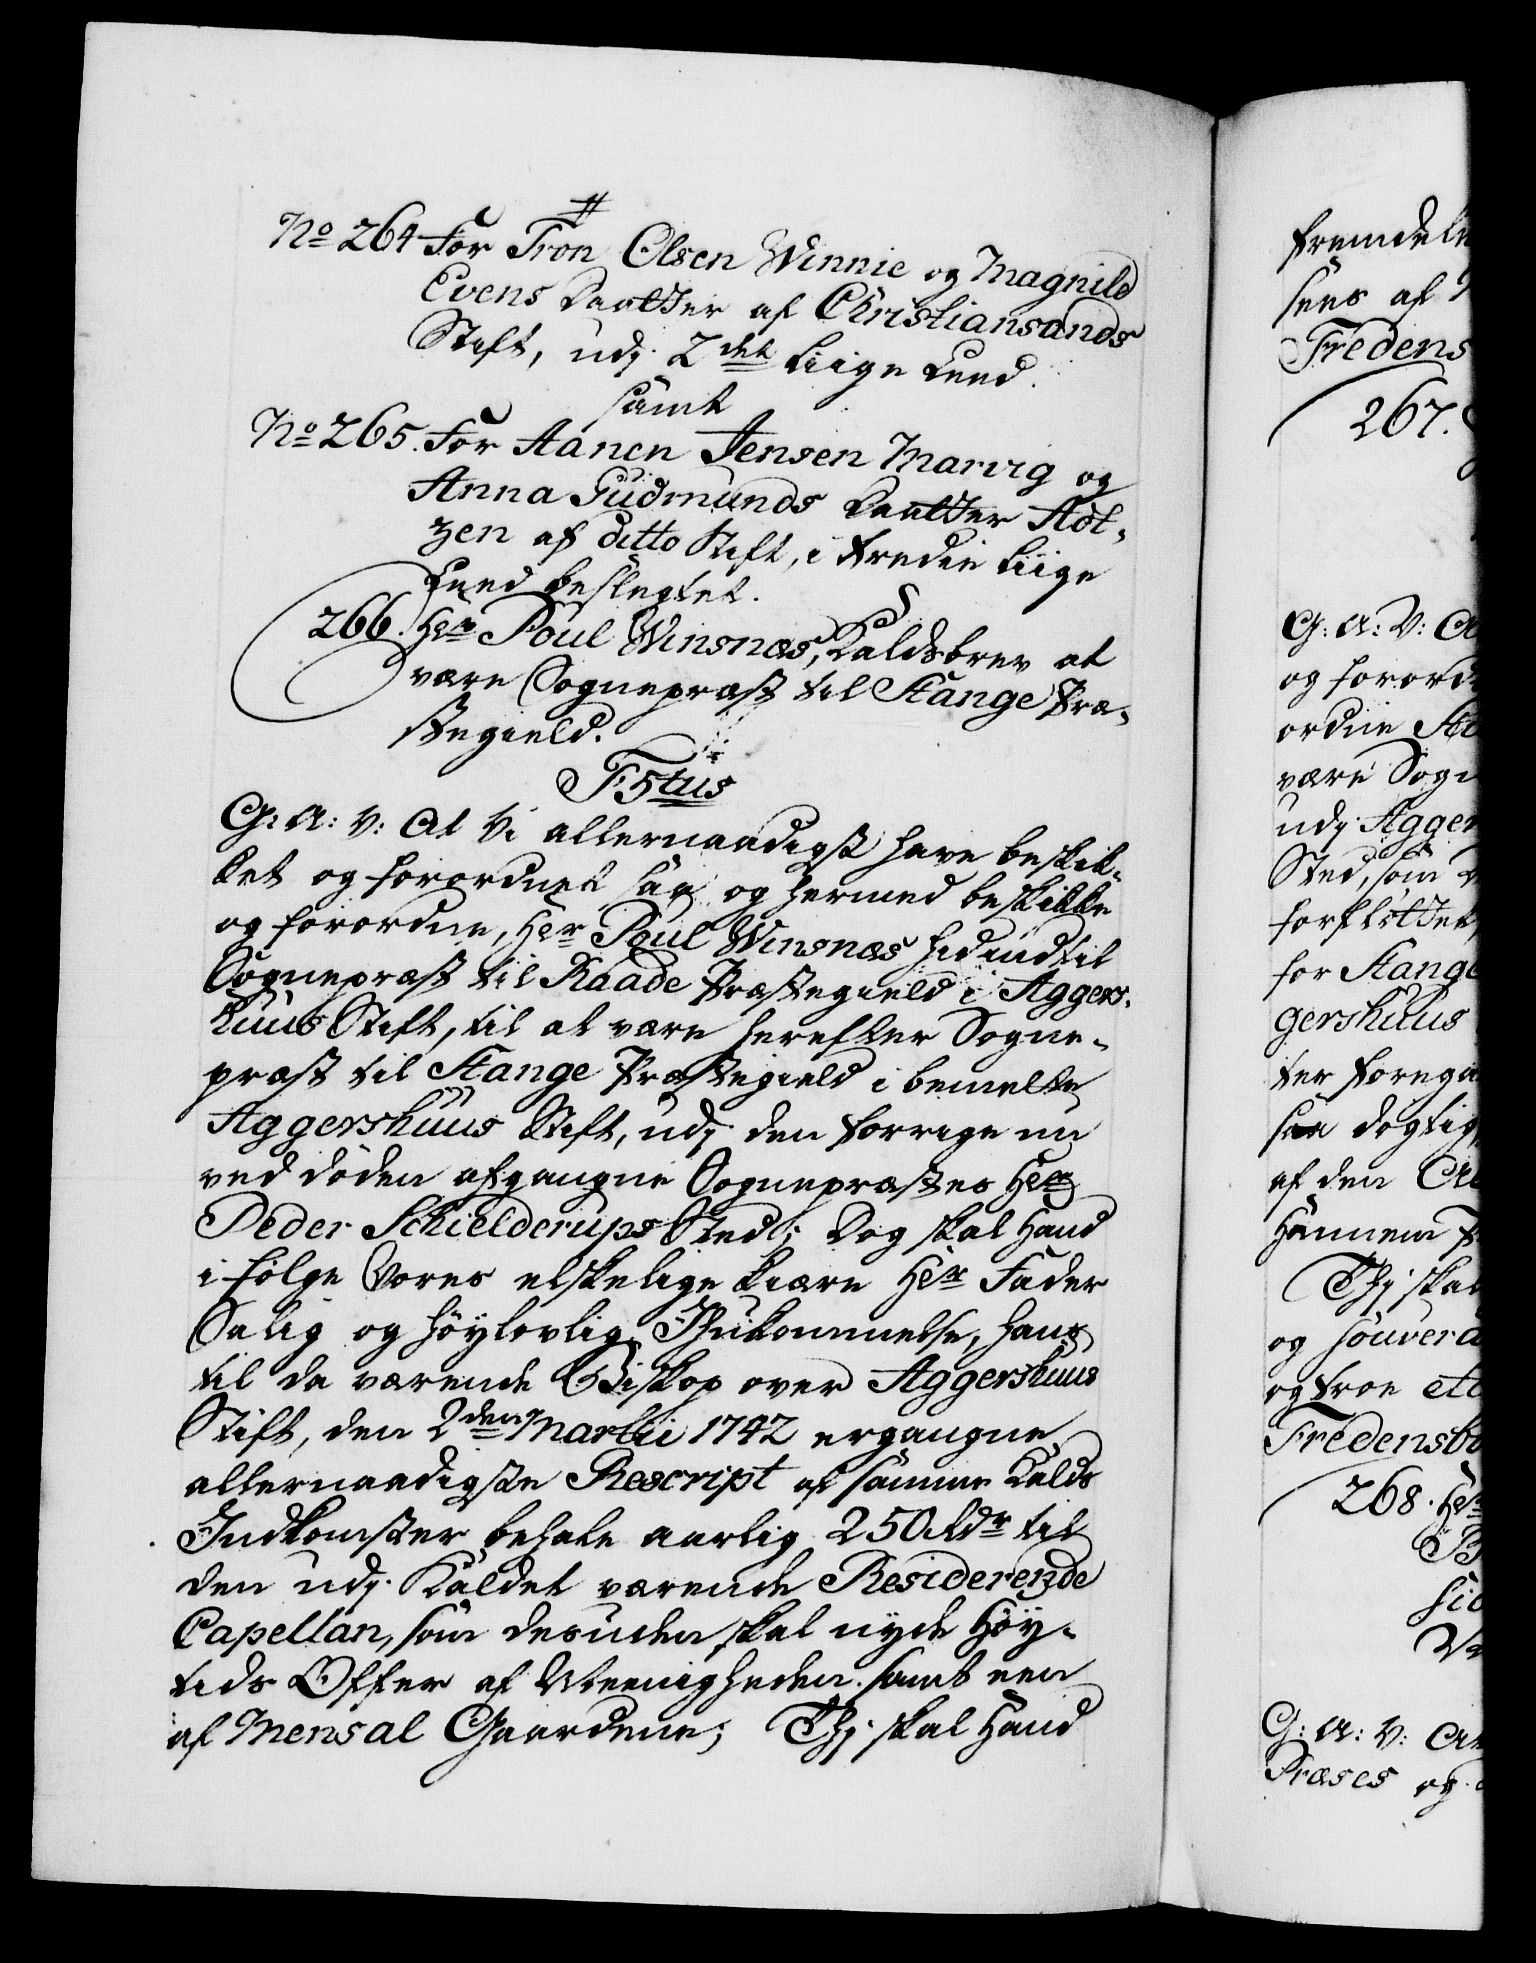 #
No 264 For Tron Olsen Winnie og Magnild
Evens Daatter af Christiansands
Stift, udj 2det Liige Leed.
samt
No 265. For Aanen Jensen Marvig og
Anna Gudmunds Daatter
zen af ditto Stift, i tredie Liige
Leed beslegtet.
266. Hr Poul Winsnæs, Kaldsbrev at
være Sognepræst til Stange Præ-
stegield.
F5tus
G: A: V: At Vi allernaadigst have beskik-
ket og forordnet saa og hermed beskikke
og forordne, Hr Poul Winsnæs hidindtil
Sognepræst til Raade Præstegield i Aggers-
huus Stift, til at være herefter Sogne-
præst til Stange Præstegield i bemelte
Aggershuus Stift, udj den forrige nu
ved døden afgangne Sognepræstes Hr
Peder Schielderups Sted; Dog skal Hand
i følge Vores elskelige kiære Hr Fader
Salig og Høylovlig Ihukommelse, hans
til da værende Biskop over Aggershuus
Stift, den 2den Martii 1742 ergangne
allernaadigste Rescript af samme Kalds
Indkomster betale aarlig 250 rdr til
den udj Kaldet værende Residerende
Capellan, som desuden skal nyde Høy-
tids Offer af Meenigheden samt een
af Mensal Gaardene; Thj skal Hand
sees af
Fredens
267.
G: A: V: At
og forord
være Sogn
udj Agger
Sted, som
forflöttet
for Stange
gershuus
saa dogtig
af den
Hannem
Thj skal
og souvera
og troe etc
Fredensbo
268. Hr
G: A: V: At
Præses og